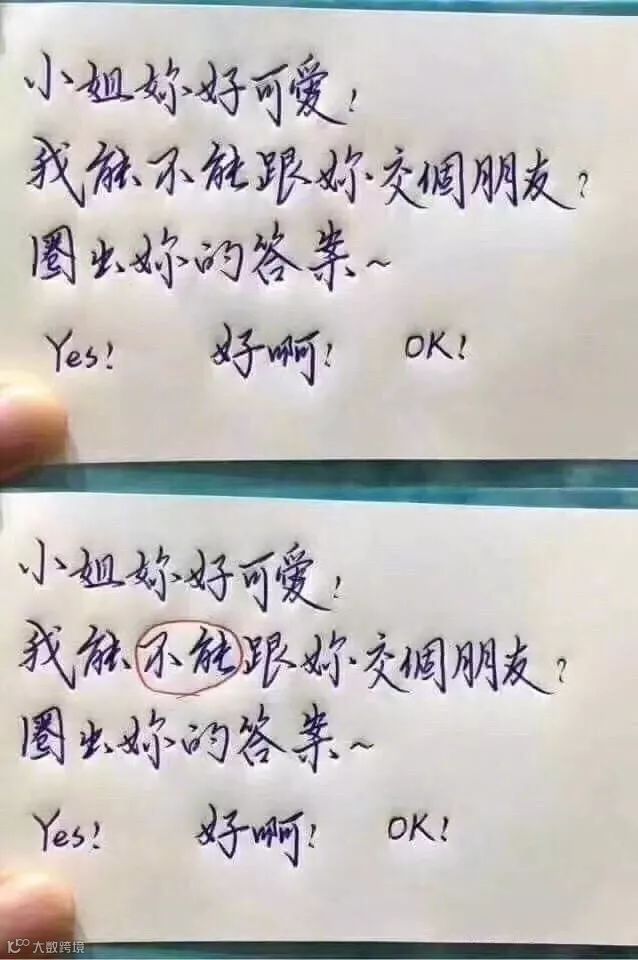 小姐妳好可愛！
我能不能跟妳交個朋友？
圈出妳的答案~
Yes! 好啊！ OK!
小姐妳好可愛！
我能不能跟妳交個朋友？
圈出妳的答案~
Yes! 好啊！ OK!
大数跨境